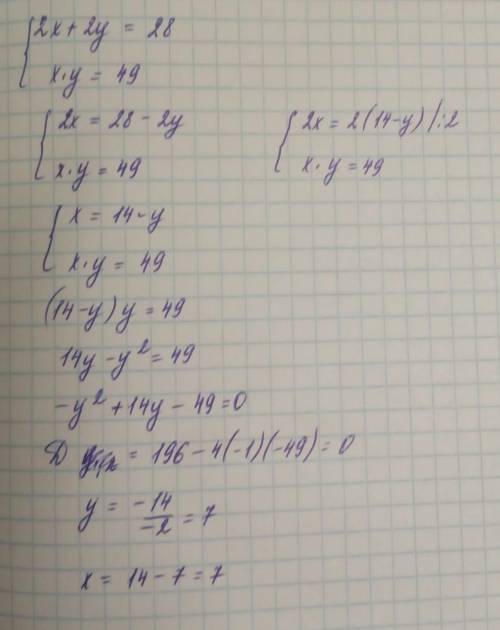 { 2x + 2y = 28
x · y = 49
{ 2x = 28 - 2y
x · y = 49
{ 2x = 2(14-y) |:2
x · y = 49
{ x = 14 - y
x · y = 49
(14-y) y = 49
14y - y² = 49
-y² + 14y - 49 = 0
D = 196 - 4(-1)(-49) = 0
y = -14/-2 = 7
x = 14 - 7 = 7